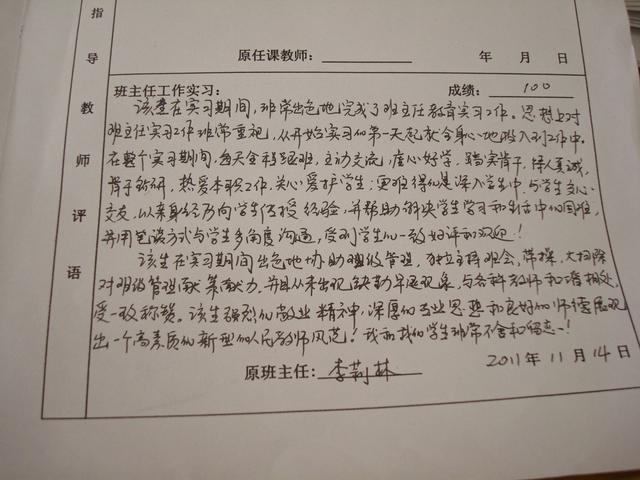 指导教师评语
原任课教师： 年 月 日
班主任工作实习： 成绩：100
该生在实习期间，非常出色地完成了班主任教育实习工作。思想上对
班主任实习工作非常重视，从开始实习的第一天起就全身心地投入到工作中。
在整个实习期间，每天全程跟班，主动交流，虚心好学，踏实肯干，待人真诚，
肯于钻研，热爱本职工作，关心爱护学生；更难得的是深入学生中，与学生交心
交友，以亲身经历向学生传授经验，并帮助解决学生学习和生活中的困难，
并用笔谈方式与学生多角度沟通，受到学生的一致好评和欢迎！
该生在实习期间出色地协助班级管理，独立主持班会，带操，大扫除
对班级管理献策献力。并且从未出现缺勤早退现象，与各科教师和谐相处，
受一致称赞。该生强烈的敬业精神，深厚的专业思想和良好的师德展现
出一个高素质的新型的人民教师风范！我和我们学生非常不舍和留恋！
原班主任：李莉林 2011年11月14日